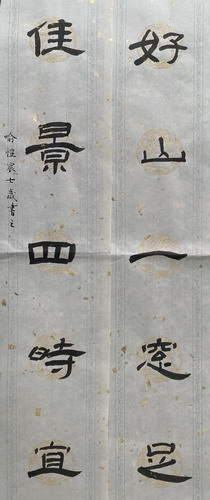 好山一窓足
佳景四時宜
俞惟宸七歲書之